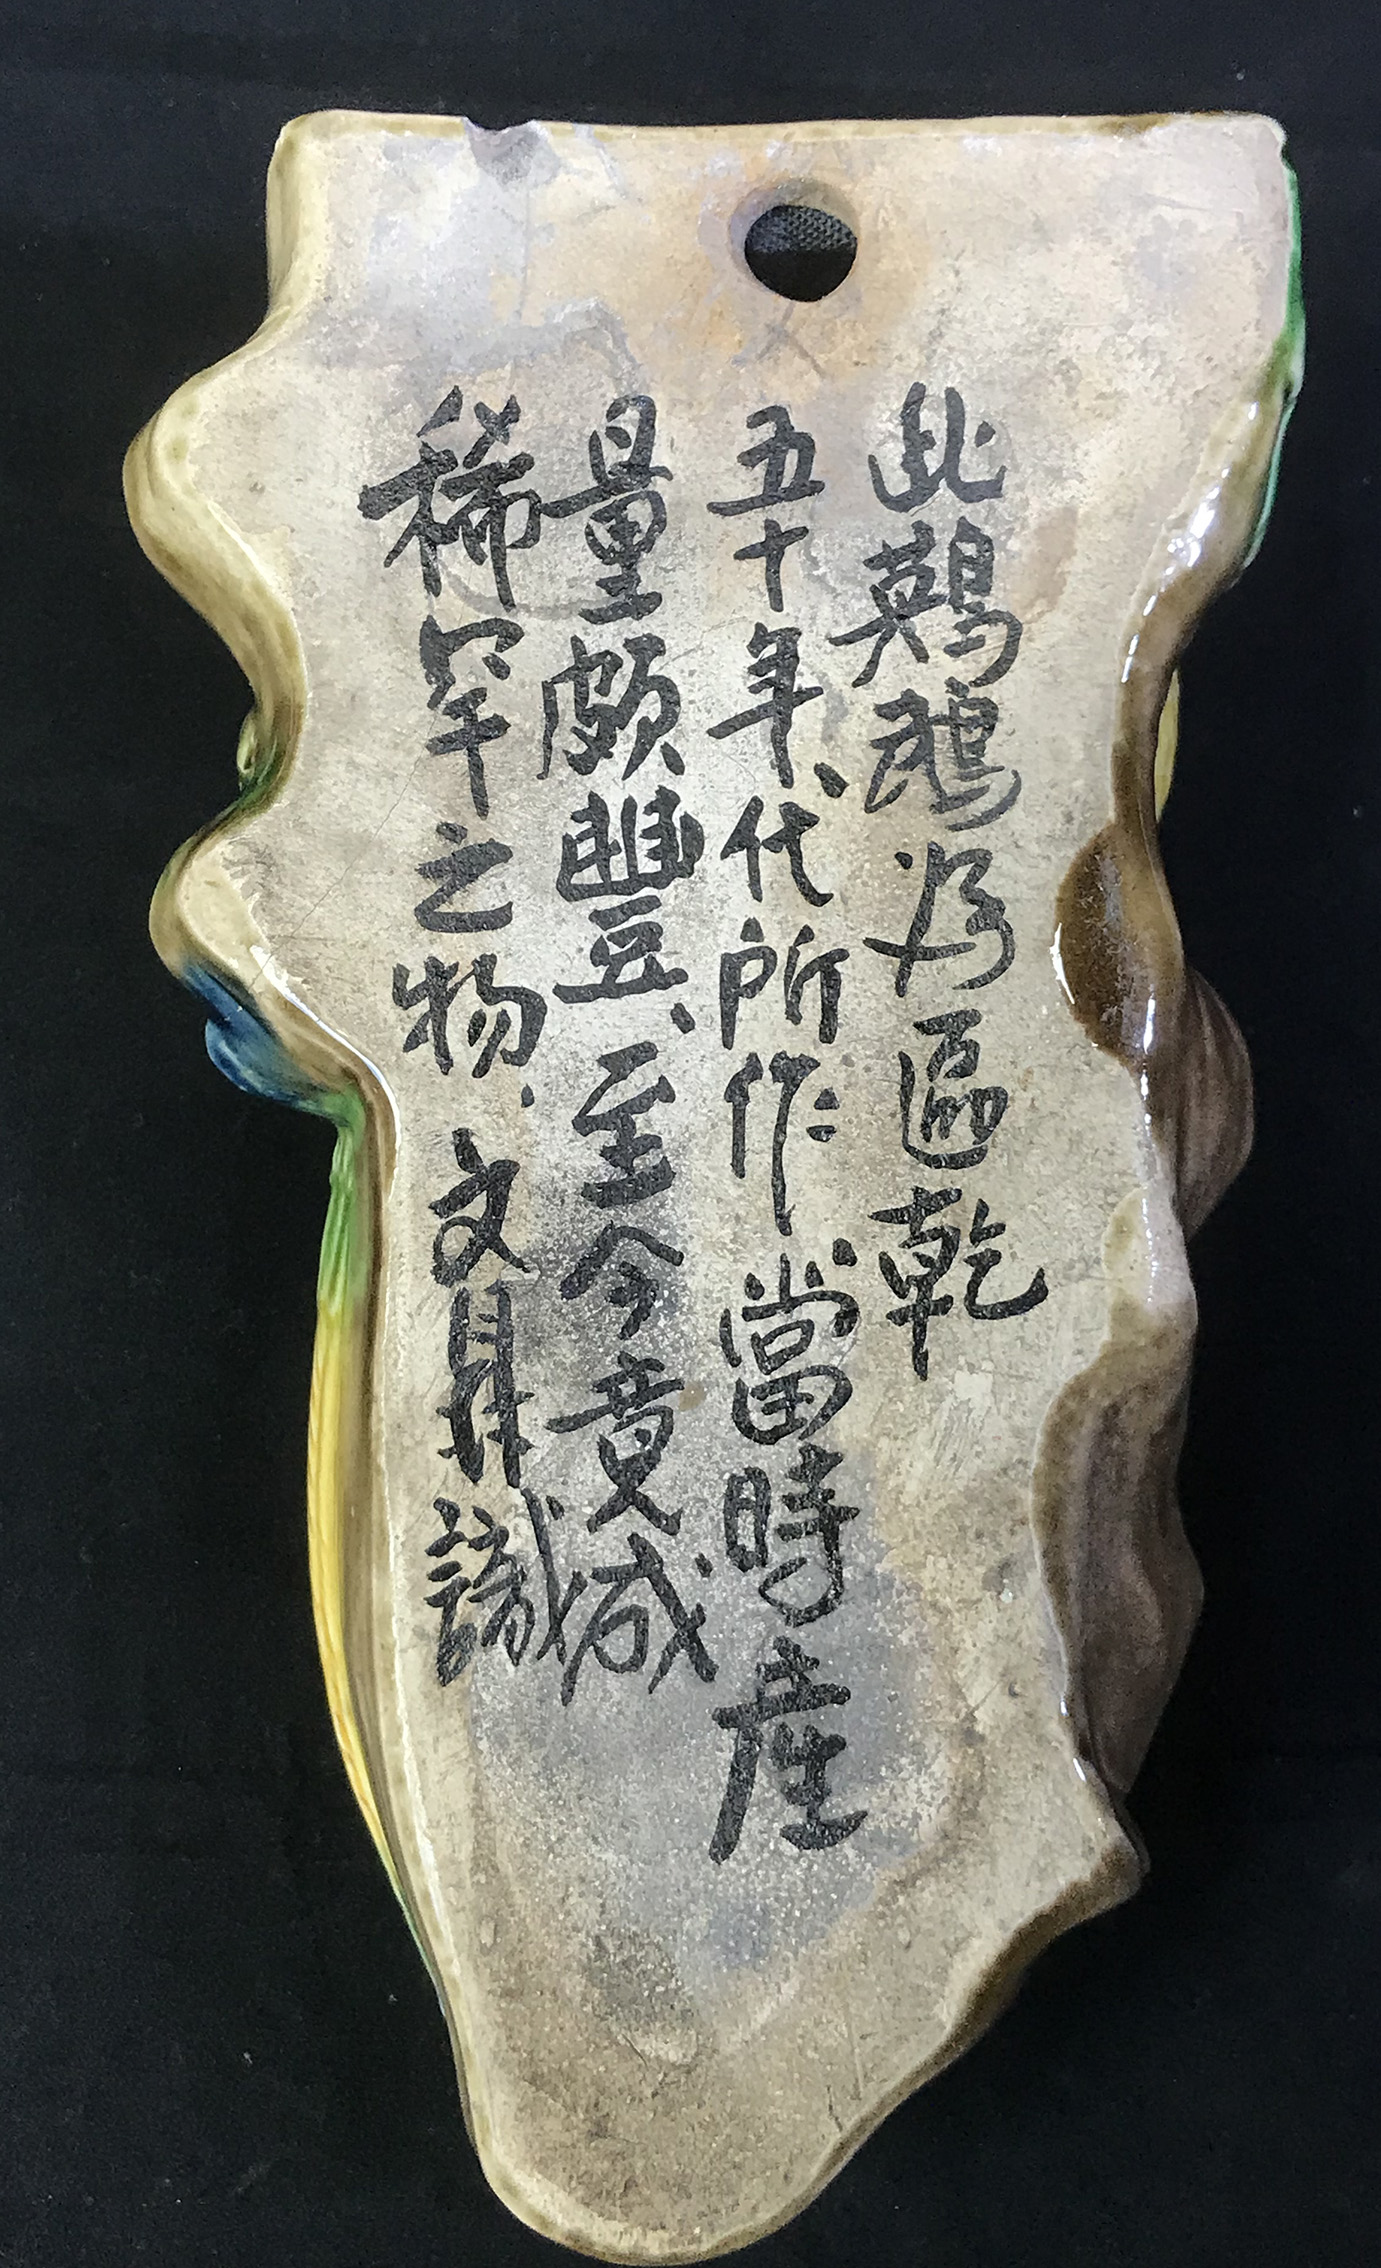 此鶧鵡为區乾
五十年代所作當時產
量頗豐、至今竟成
稀罕之物．文昇識